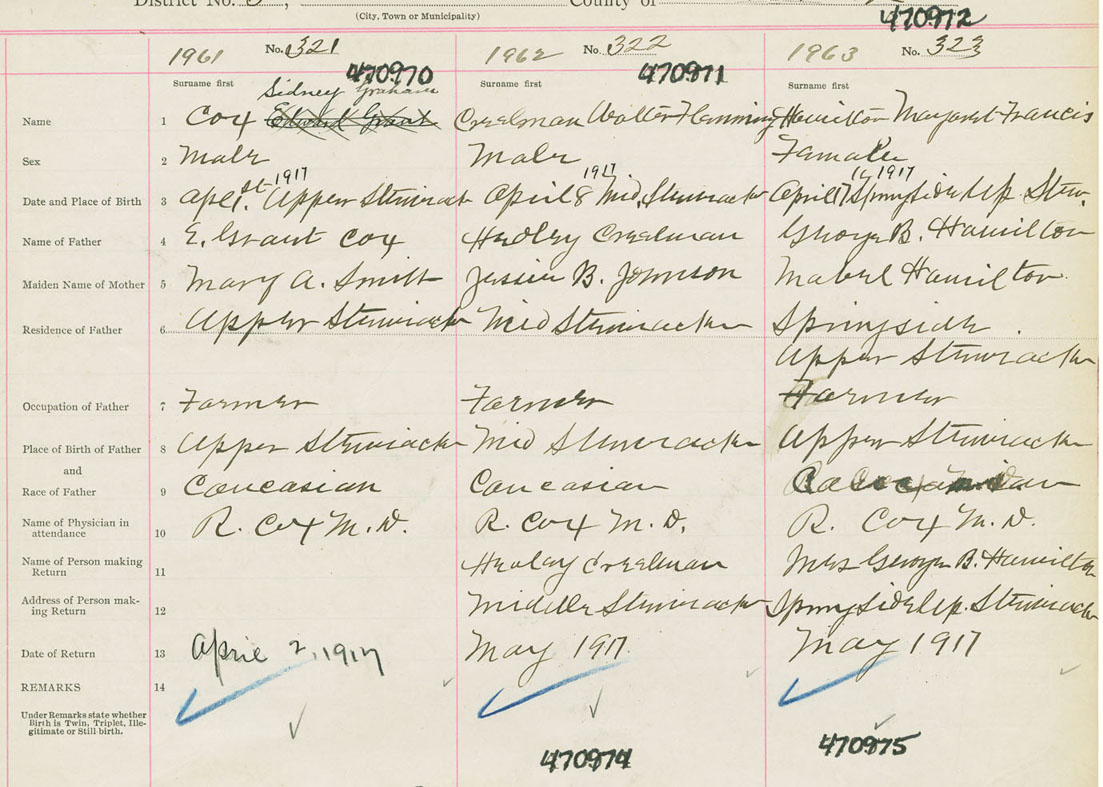 District No. 3, County of
(City, Town or Municipality)
470972
1961 No. 321 1962 No. 322 1963 No. 323
470970 470971
Surname first Surname first Surname first
Sidney Graham
Name 1 Cox Edward Grant Creelman Walter Flemming Hamilton Margaret Francis
Sex 2 Male Male Female
1917 1917 1917
Date and Place of Birth 3 Apl 1st. Upper Stewiacke April 8 Mid. Stewiacke April 17 Springside Up. Stew.
Name of Father 4 E. Grant Cox Hedley Creelman George B. Hamilton
Maiden Name of Mother 5 Mary A. Smith Jessie B. Johnson Mabel Hamilton
Residence of Father 6 Upper Stewiacke Mid Stewiacke Springside
Upper Stewiacke
Occupation of Father 7 Farmer Farmer Farmer
Place of Birth of Father 8 Upper Stewiacke Mid Stewiacke Upper Stewiacke
and
Race of Father 9 Caucasian Caucasian Caucasian
Name of Physician in
attendance 10 R. Cox M.D. R. Cox M.D. R. Cox M.D.
Name of Person making
Return 11 Hedley Creelman Mrs George B. Hamilton
Address of Person mak-
ing Return 12 Middle Stewiacke Springside Up. Stewiacke
Date of Return 13 April 2, 1917 May 1917 May 1917
REMARKS 14
Under Remarks state whether
Birth is Twin, Triplet, Ille-
gitimate or Still-birth.
470974 470975